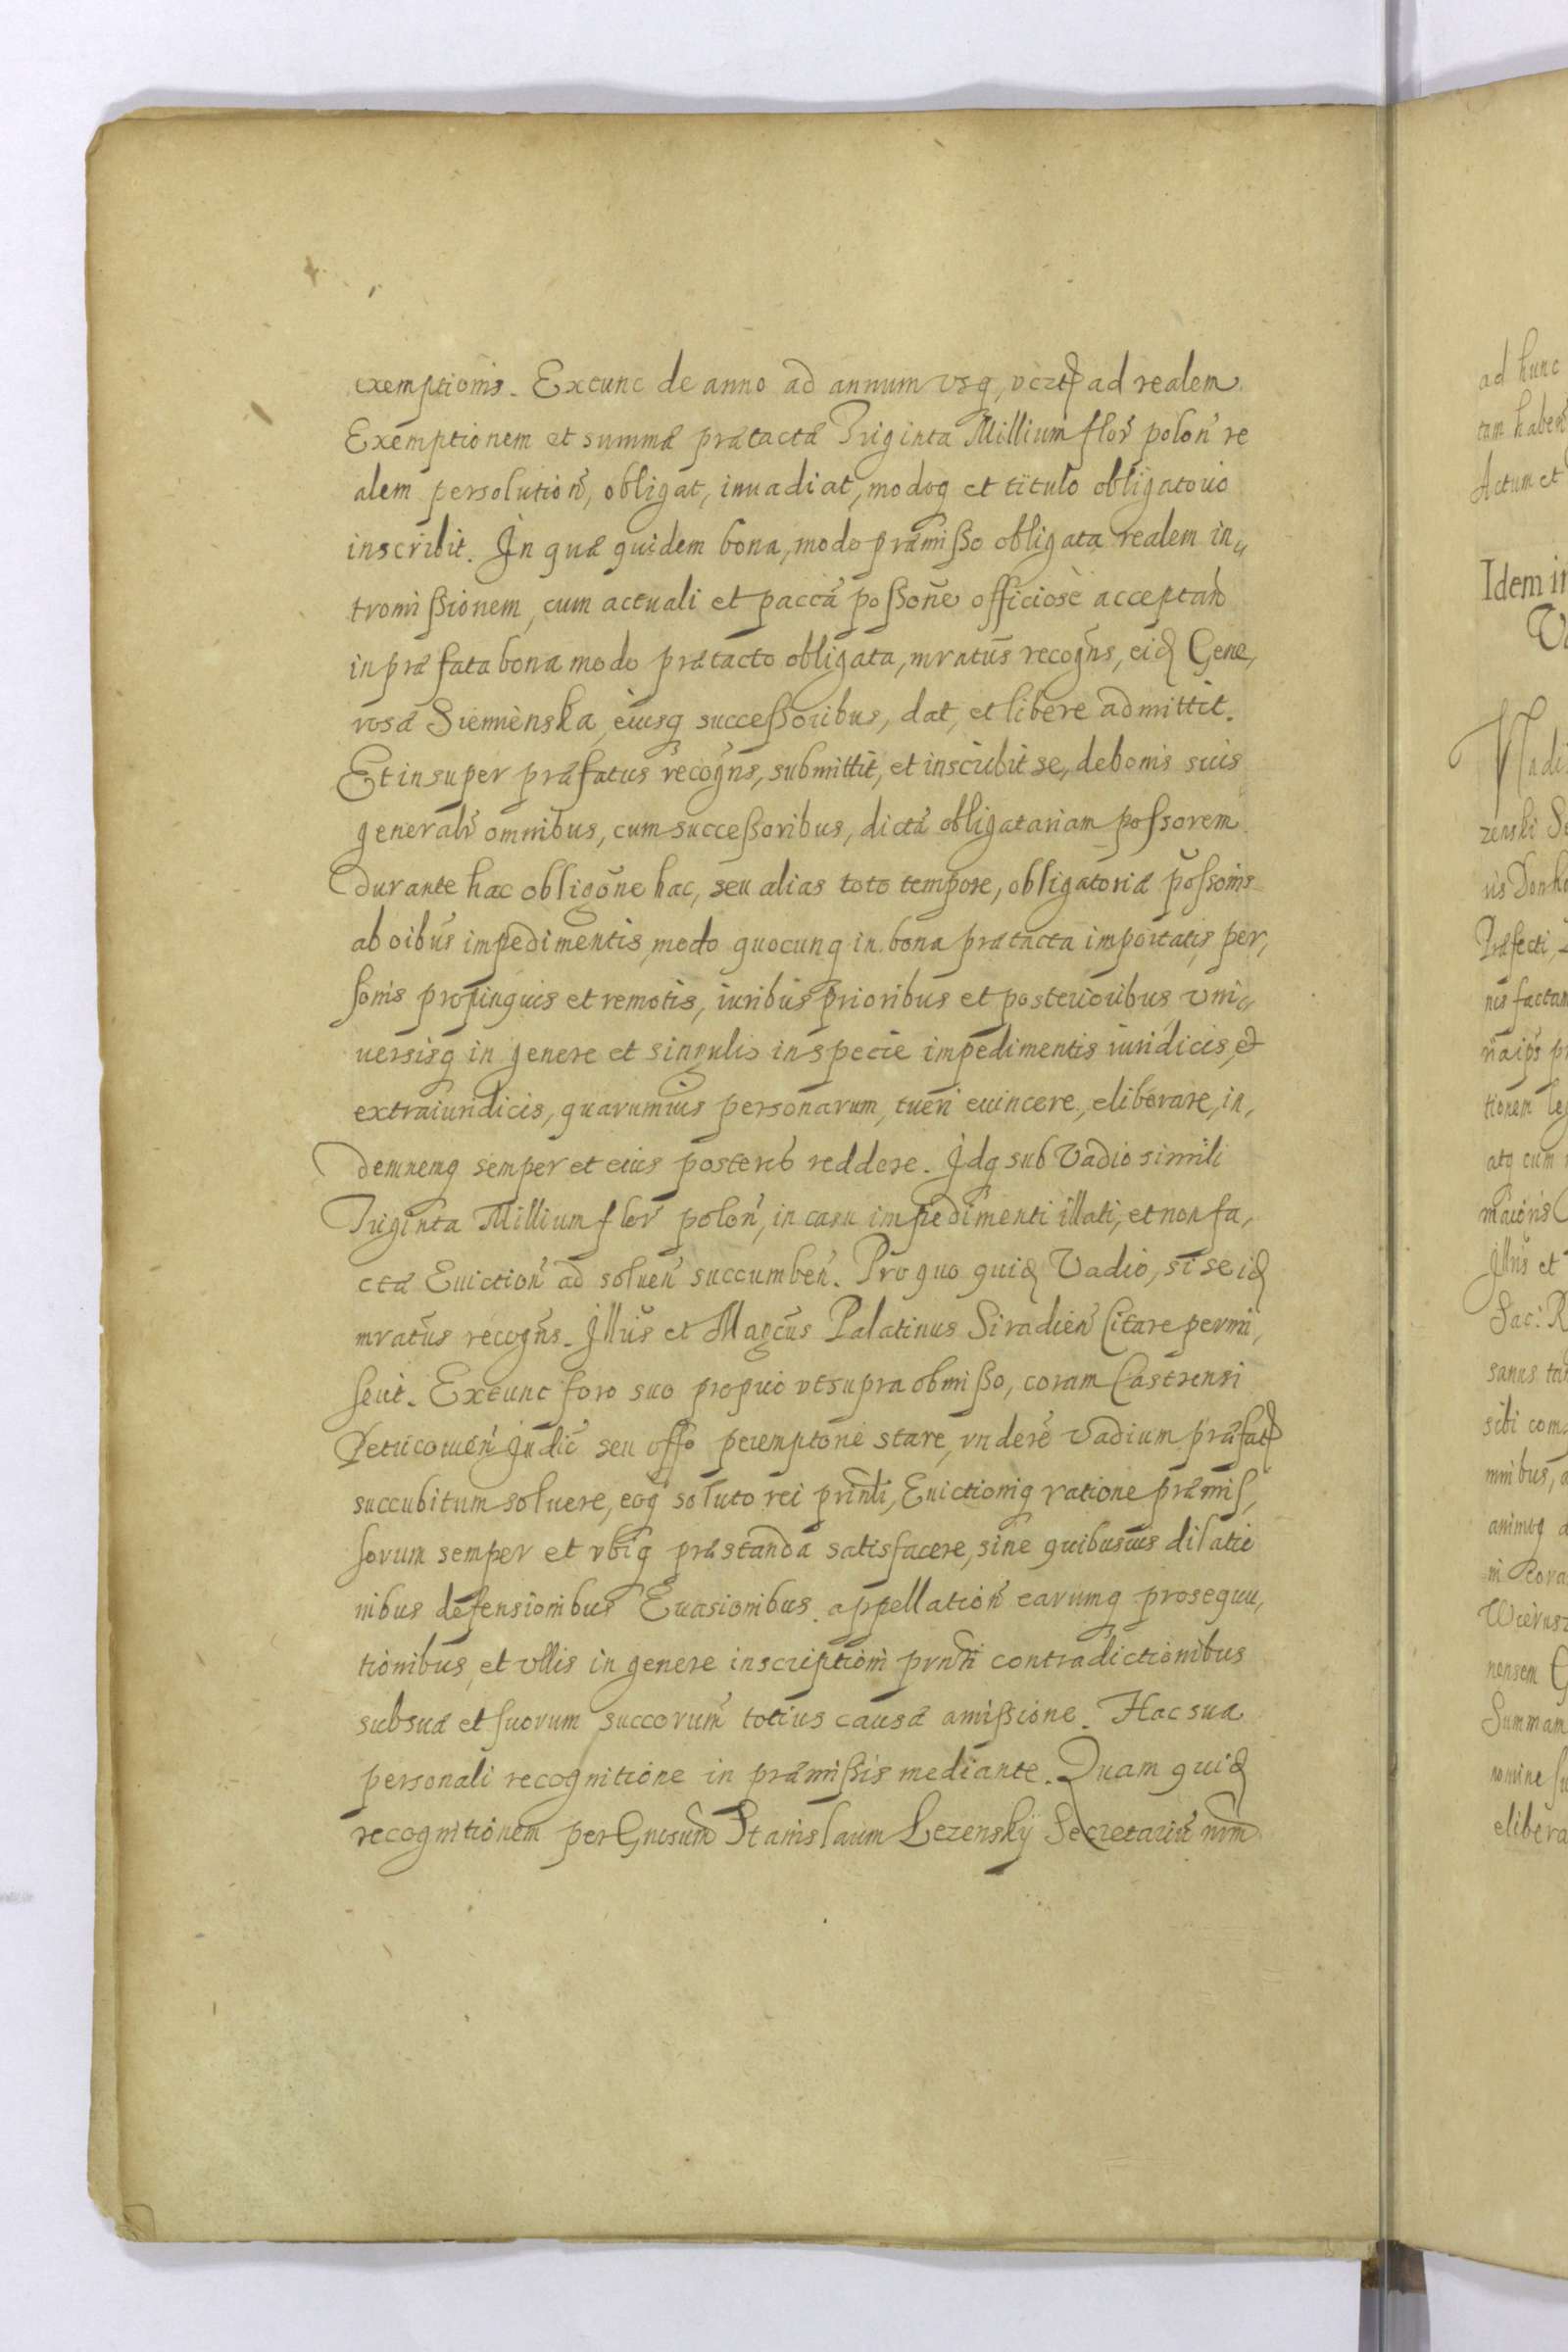 exemptionis. Extunc de anno ad annum vsq, ad realem
Exemptionem et summæ prætactæ Triginta Millium flor polon re
alem persolution, obligat, inuadiat, modoq et titulo obligatorio
inscribit. In quæ quidem bona, modo præmisso obligata realem in
tromissionem, cum actuali et paccã possone officiosè acceptand
in præfata bona modo prætacto obligata, mratus recogns, eid Gene,
rosæ Siemienska, eiusq successoribus, dat, et libere admittit.
Et insuper præfatus recogns, submittit, et inscribit se, de bonis suis
generalr omnibus, cum successoribus, dictã obligatariam possorem
durante hac obligone hac, seu alias toto tempore, obligatoriæ possonis
ab oibus impedimentis, modo quocunq in bona prætacta importatis, per,
sonis propinquis et remotis, iuribus prioribus et posterioribus, vni
uersisq in genere et singulis in specie impedimentis iuridicis, et
extraiuridicis, quarumuis personarum, tueri euincere, eliberare, in,
demnemq semper et eius posteros reddere. Idq sub Vadio simili
Triginta Millium flor polon, in casu impedimenti illati, et non fa,
ctæ Euiction ad soluen succumben. Pro quo quid Vadio, si se id
mratus recogns. Illus et Magcus Palatinus Siradien Citare permi,
serit. Extunc foro suo proprio vt supra obmisso, coram Castrensi
Petricouien Judic seu offo peremptone stare, vndere Vadium præfat
succubitum soluere, eoq soluto rei prinli, Euictioniq ratione præmis,
sorum semper et vbiq præstanda satisfacere, sine quibusuis dilatio
nibus defensionibus Euasionibus appellation earumq prosequu,
tionibus, et vllis in genere inscriptioni prnti contradictionibus
sub suæ et suorum succorum totius causæ amissione. Hac sua
personali recognitione in præmissis mediante. Quam quid
recognitionem per Gnosum Stanislaum Lezenskÿ Secretariu nrm
ad hunc
tam haben
Actum et
Idem in
zenski Se
Præfecti,
nis factam
tionem leg
atq cum
maioris
Illus et
Sac: R
sanus
sibi com
mnibus, a
animoq
nensem G
Summam
nomine su
elibera